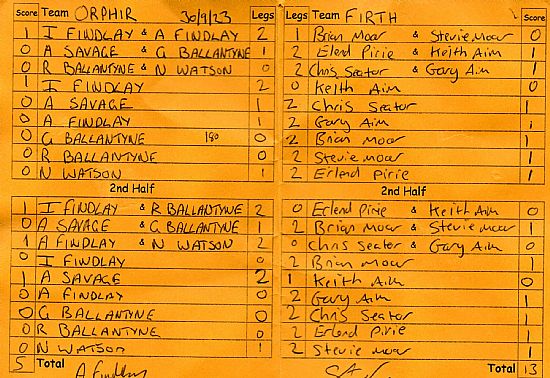 Score Team ORPHIR 30/9/23 Legs Legs Team FIRTH Score
1 I FINDLAY & A FINDLAY 2 1 Brian Moar & Stevie Moar 0
0 A SAVAGE & G BALLANTYNE 1 2 Erlend Pirie & Keith Aim 1
0 R BALLANTYNE & N WATSON 0 2 Chris Seator & Gary Aim 1
1 I FINDLAY 2 0 Keith Aim 0
0 A SAVAGE 1 2 Chris Seator 1
0 A FINDLAY 1 2 Gary Aim 1
0 G BALLANTYNE 180 0 2 Brian Moar 1
0 R BALLANTYNE 0 2 Stevie Moar 1
0 N WATSON 1 2 Erlend Pirie 1
2nd Half 2nd Half
1 I FINDLAY & R BALLANTYNE 2 0 Erlend Pirie & Keith Aim 0
0 A SAVAGE & G BALLANTYNE 1 2 Brian Moar & Stevie Moar 1
1 A FINDLAY & N WATSON 2 0 Chris Seator & Gary Aim 0
0 I FINDLAY 0 2 Brian Moar 1
1 A SAVAGE 2 1 Keith Aim 0
0 A FINDLAY 0 2 Gary Aim 1
0 G BALLANTYNE 0 2 Chris Seator 1
0 R BALLANTYNE 0 2 Erlend Pirie 1
0 N WATSON 1 2 Stevie Moar 1
5 Total A Findlay Total 13